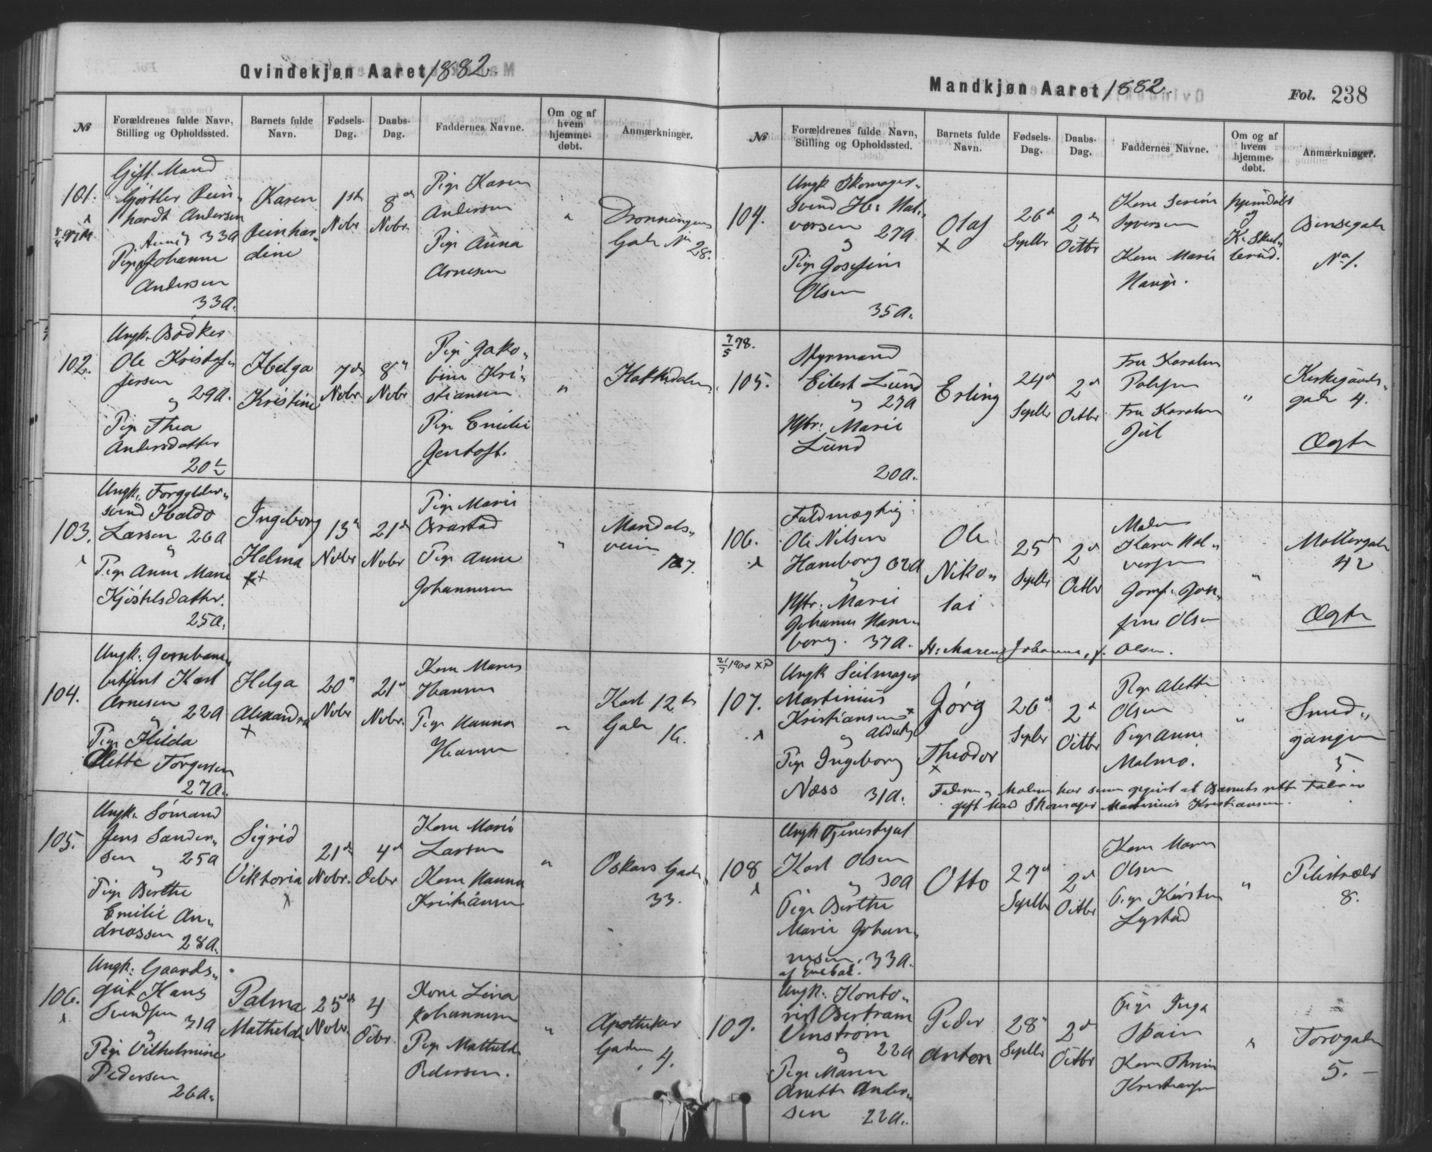 Qvindekjøn Aaret 1882.
№
Forældrenes fulde Navn, Stilling og Opholdssted.
Barnets fulde Navn.
Fødsels-Dag.
Daabs-Dag.
Faddernes Navne.
Om og af hvem hjemme-døbt.
Anmærkninger.
101.
Gift Mand
Gjørtler Rein-
hardt Andersen
33 a
Pige Johanne
Andersen
33 a.
Karen
Reinhar-
dine
1ste
Novbr
8de
Novbr.
Pige Karen
Andersen
Pige Anna
Arnesen
"
Dronningens
Gade No 28.
102.
Ungk. Bødker
Ole Kristof-
fersen
29 a.
"
Pige Thea
Andersdatter
20
Helga
Kristine
7de
Novbr.
8de
Novbr
Pige Jako-
bine Kri-
stiansen
Pige Emilie
Jentoft.
"
Hakkedalen
103.
Ungk. Forgylder-
svend Haldo
Larsen 26 a
"
Pige Anne Marie
Kjøstelsdatter.
25 a.
Ingeborg
Helma
13de
Novbr
21de
Novbr
Pige Marie
Pige Anne
Johannesen
"
Mandals-
veien
104.
Ungk. Jernbane-
betjent Karl
Arnesen
22 a
"
Pige Hilda
Olette Torgersen
27 a.
Helga
Alexandra
20de
Novbr
21de
Novbr.
Kone Maren
Hansen
Pige Hanna
Hansen
"
Karl 12te
Gade 16.
105.
Ungk. Sømand
Jens Sander-
sen 25 a
"
Pige Berthe
Emilie An-
dreassen 28 a.
Sigrid
Viktoria
21de
Novbr.
4de
Decbr
Kone Marie
Larsen
Kone Hanna
Kristiansen
"
Oskars Gade
33.
106.
Ungk. Gaards-
gut Hans
31 a
Pige Vilhelmine
Pedersen
26 a.
Palma
Mathilde
25de
Novbr.
4
Decbr.
Kone Lina
Johannesen
Pige Mathilde
Pedersen.
"
Apotheker
Gaden 4.
Mandkjøn Aaret 1882.
Fol. 238
№
Forældrenes fulde Navn, Stilling og Opholdssted.
Barnets fulde Navn.
Fødsels-Dag.
Daabs-Dag.
Faddernes Navne.
Om og af hvem hjemme-døbt.
Anmærkninger.
104.
Ungk Skomager-
svend H. Hal-
vorsen 27 a
"
Pige Josefine
Olsen
35 a.
Olaf
26de
Septbr
2den
Octbr
Kone Severine
Syversen
Kone Marie
Hauge.
hjemdøbt
af
Bensegade
No 1.
7/5 98.
105.
Styrmand
Eilert Lund
" 27 a
Hstr. Marie
Lund
20 a.
Erling
24de
Septbr
2den
Octbr
Fru Karoline
Fru Karoline
Jul
"
Kirkegaards-
gade 4.
Ægte
106.
Fuldmægtig
Ole Nilsen
Haneborg 32 a
"
Hstr. Marie
Johanne Hane-
borg. 37 a.
Ole
Niko-
lai
25de
Septbr
2den
Octbr
Maler
Karen Hal-
vorsen
Jomf. Jose-
fine Olsen
"
Møllergade
42
Ægte
H: Maren Johanne, f. Olsen.
107.
Ungk Seilmager
Martinius
Kristiansen
"
Pige Ingeborg
Næss 31 a.
Jørg
Theodor
26de
Septbr
2den
Octbr
Pige Alette
Olsen
Pige Anne
Malmo.
"
Smed-
gangen
5.
gift Mand Skomager Martinius Kristiansen.
108
Ungk Tjenestgut
Karl Olsen
30 a
"
Pige Berthe
Marie Johan-
nesen. 33 a.
Otto
27de
Septbr
2den
Octbr
Kone Maren
Olsen
Pige Kirsten
Lystad
"
Pilestræde
8.
109.
Ungk. Konto-
rist Bertram
Unstrom
" 22 a
Pige Maren
Anette Ander-
sen 22 a.
Peder
Anton
28de
Septbr
2den
Octbr
Pige Inga
Spain
Kone Thrine
Kristiansen
"
Torvgade
5.